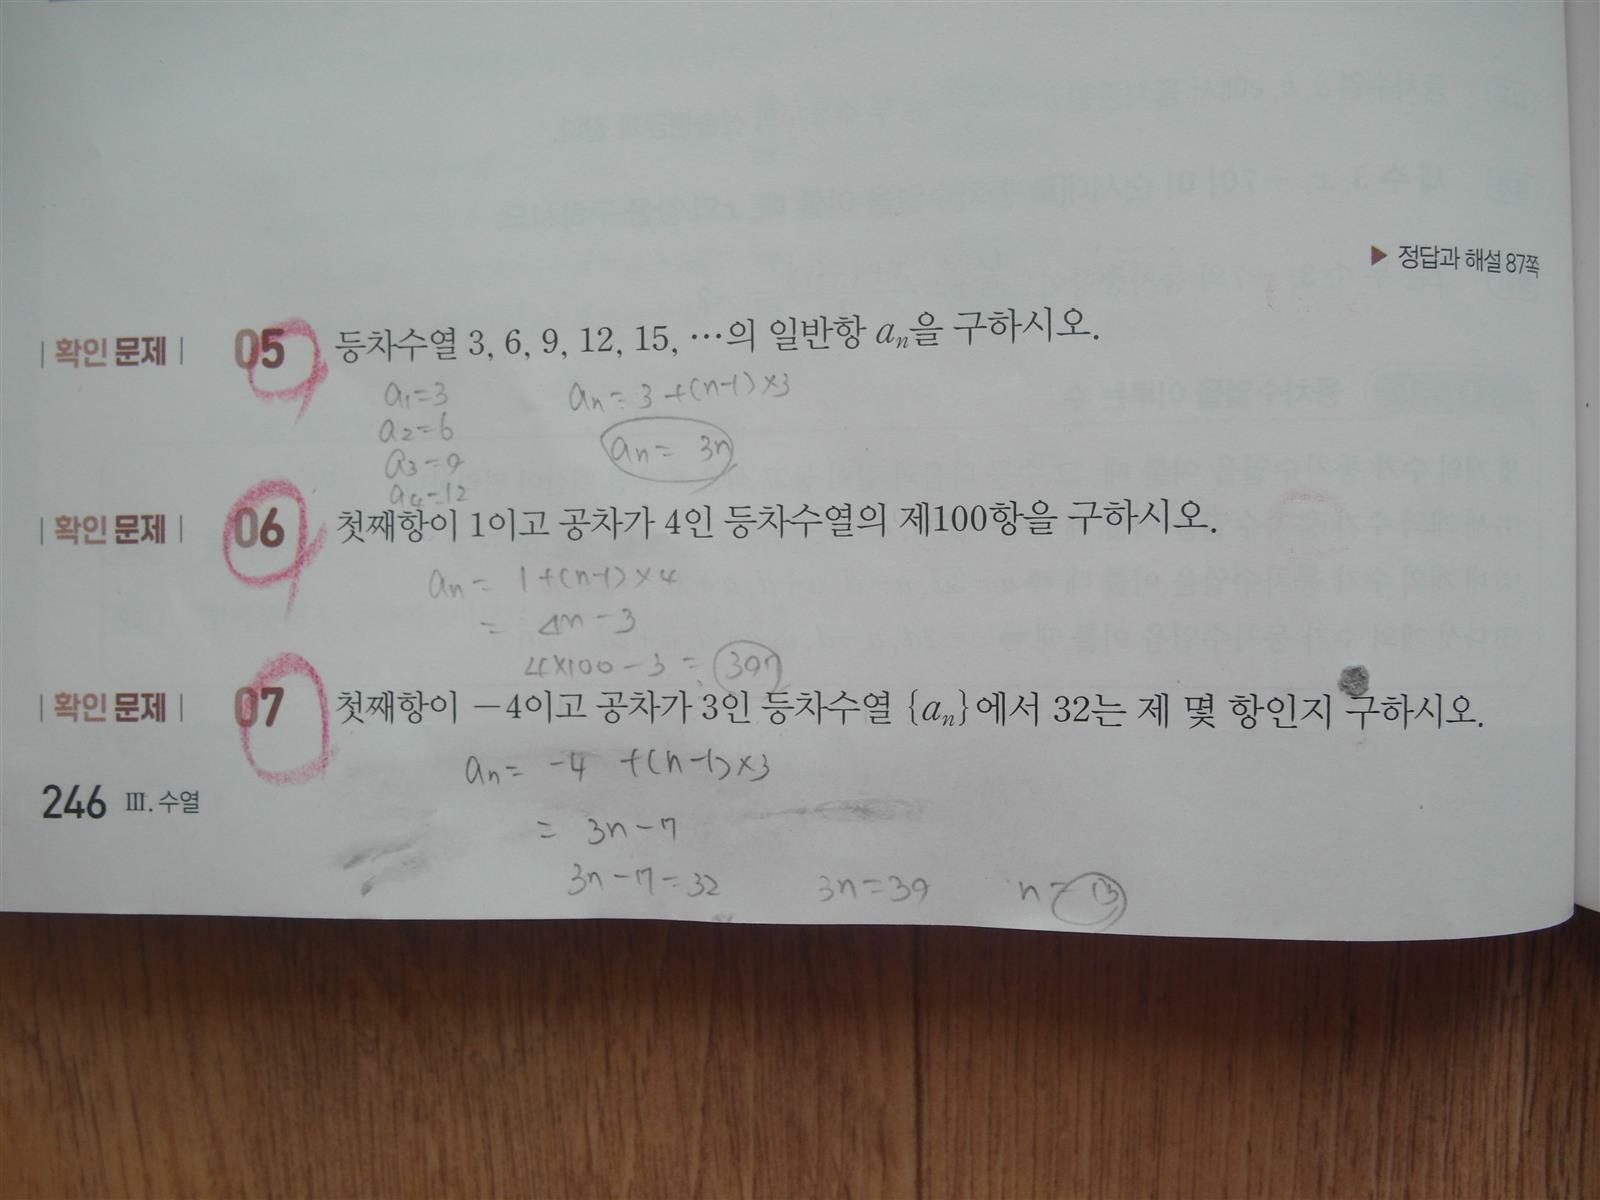 ▶ 정답과 해설 87쪽
| 확인 문제 | 05 등차수열 3, 6, 9, 12, 15, …의 일반항 aₙ을 구하시오.
a₁=3 aₙ=3+(n-1)×3
a₂=6
aₙ= 3n
a₃=9
a₄=12
| 확인 문제 | 06 첫째항이 1이고 공차가 4인 등차수열의 제100항을 구하시오.
aₙ= 1+(n-1)×4
= 4n-3
4×100-3=397
| 확인 문제 | 07 첫째항이 -4이고 공차가 3인 등차수열 {aₙ}에서 32는 제 몇 항인지 구하시오.
aₙ= -4 +(n-1)×3
246 Ⅲ. 수열
= 3n-7
3n-7=32 3n=39 n=13